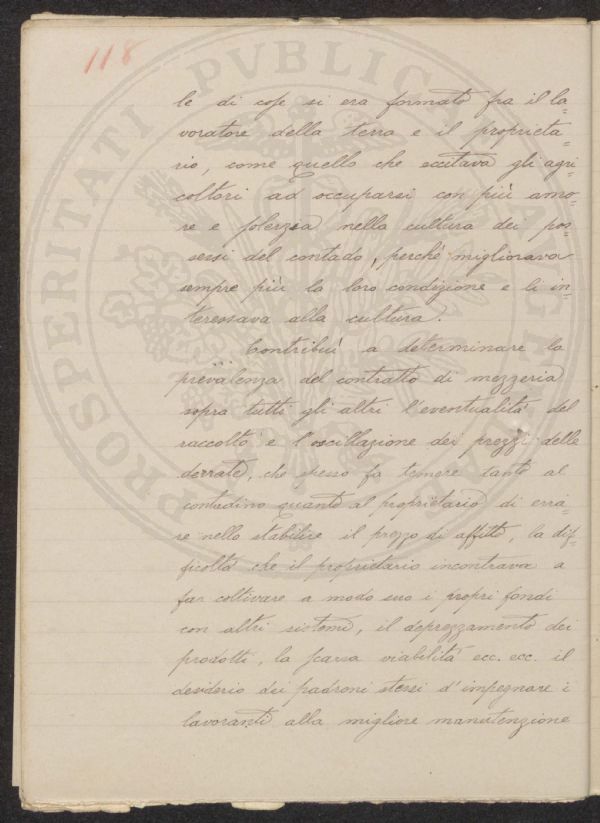 118
le di cose si era formato fra il la-
voratore della terra e il proprieta-
rio, come quello che eccitava gli agri
coltori ad occuparsi con più amo-
re e solerzia nella cultura dei pos-
sessi del contado, perchè migliorava
sempre più la loro condizione e li in-
teressava alla cultura.
Contribuì a determinare la
prevalenza del contratto di mezzeria
sopra tutti gli altri l'eventualità del
raccolto e l'oscillazione dei prezzi delle
derrate, che spesso fa temere tanto al
contadino quanto al proprietario di erra-
re nello stabilire il prezzo di affitto, la dif-
ficoltà che il proprietario incontrava a
far coltivare a modo suo i propri fondi
con altri sistemi, il deprezzamento dei
prodotti, la scarsa viabilità ecc. ecc. il
desiderio dei padroni stessi d'impegnare i
lavoranti alla migliore manutenzione
PROSPERITATI PVBLICAE AVGENDAE